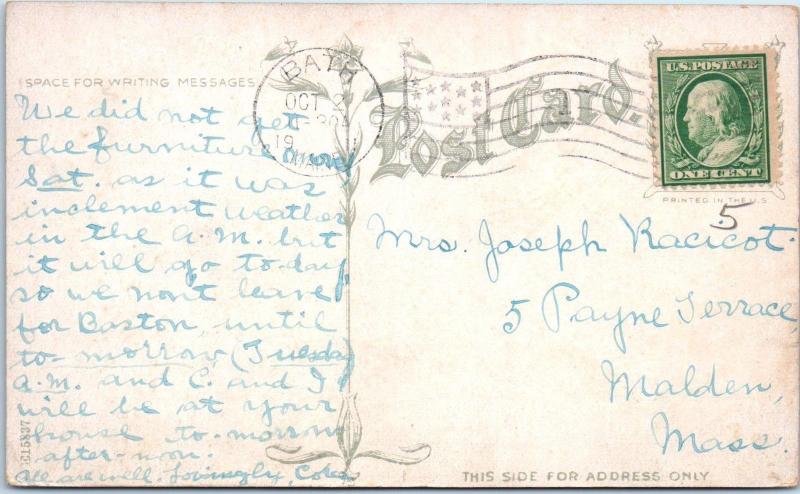 SPACE FOR WRITING MESSAGES
We did not get
the furniture
Sat. as it was
inclement weather
in the A.M. but
it will go to-day
so we won't leave
for Boston, until
to-morrow (Tuesday)
A.M. and C. and I
will be at your
house to-morrow
after-noon.
We are well. Lovingly,
C15837
BATH
OCT
19
MAINE
Post Card.
U.S. POSTAGE
ONE CENT
PRINTED IN THE U.S.
5
Mrs. Joseph Racicot.
5 Payne Terrace,
Malden,
Mass.
THIS SIDE FOR ADDRESS ONLY